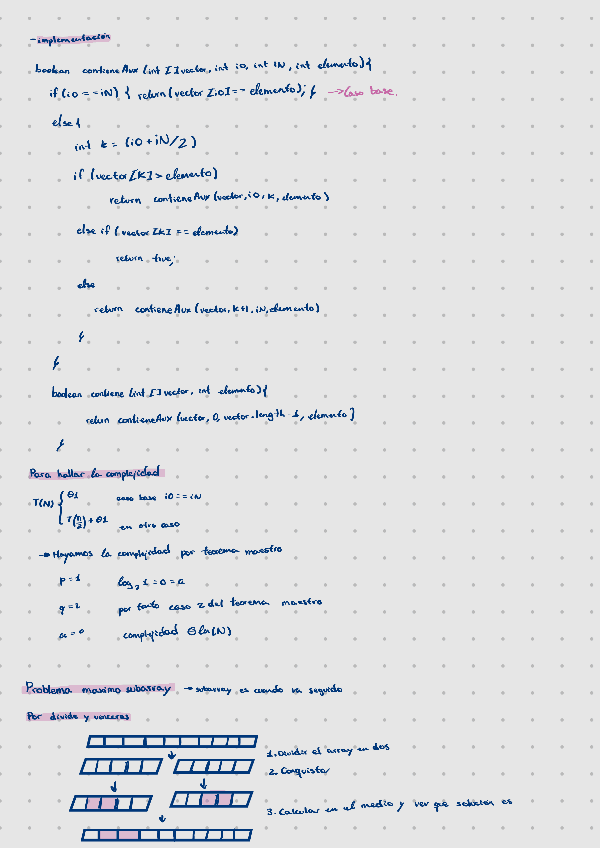 - implementación
boolean contieneAux (int [] vector, int i0, int iN, int elemento){
if (i0 == iN) { return (vector [i0] == elemento); } → Caso base.
else {
int k = (i0 + iN/2)
if (vector[k] > elemento)
return contieneAux (vector, i0, k, elemento)
else if (vector [k] == elemento)
return true;
else
return contieneAux (vector, k+1, iN, elemento)
}
}
boolean contiene (int [] vector, int elemento){
return contieneAux (vector, 0, vector.length 1, elemento]
}
Para hallar la complejidad
T(N) { Θ1 caso base i0 == iN
T(n/2) + Θ1 en otro caso
→ Hayamos la complejidad por teorema maestro
p = 1 log₂ 1 = 0 = a
q = 2 por tanto caso 2 del teorema maestro
a = 0 complejidad Θ ln(N)
Problema maximo subarray → subarray es cuando va seguido
Por divide y venceras
1. Dividir el array en dos
2. Conquista
3. Calcular en el medio y ver qué solución es